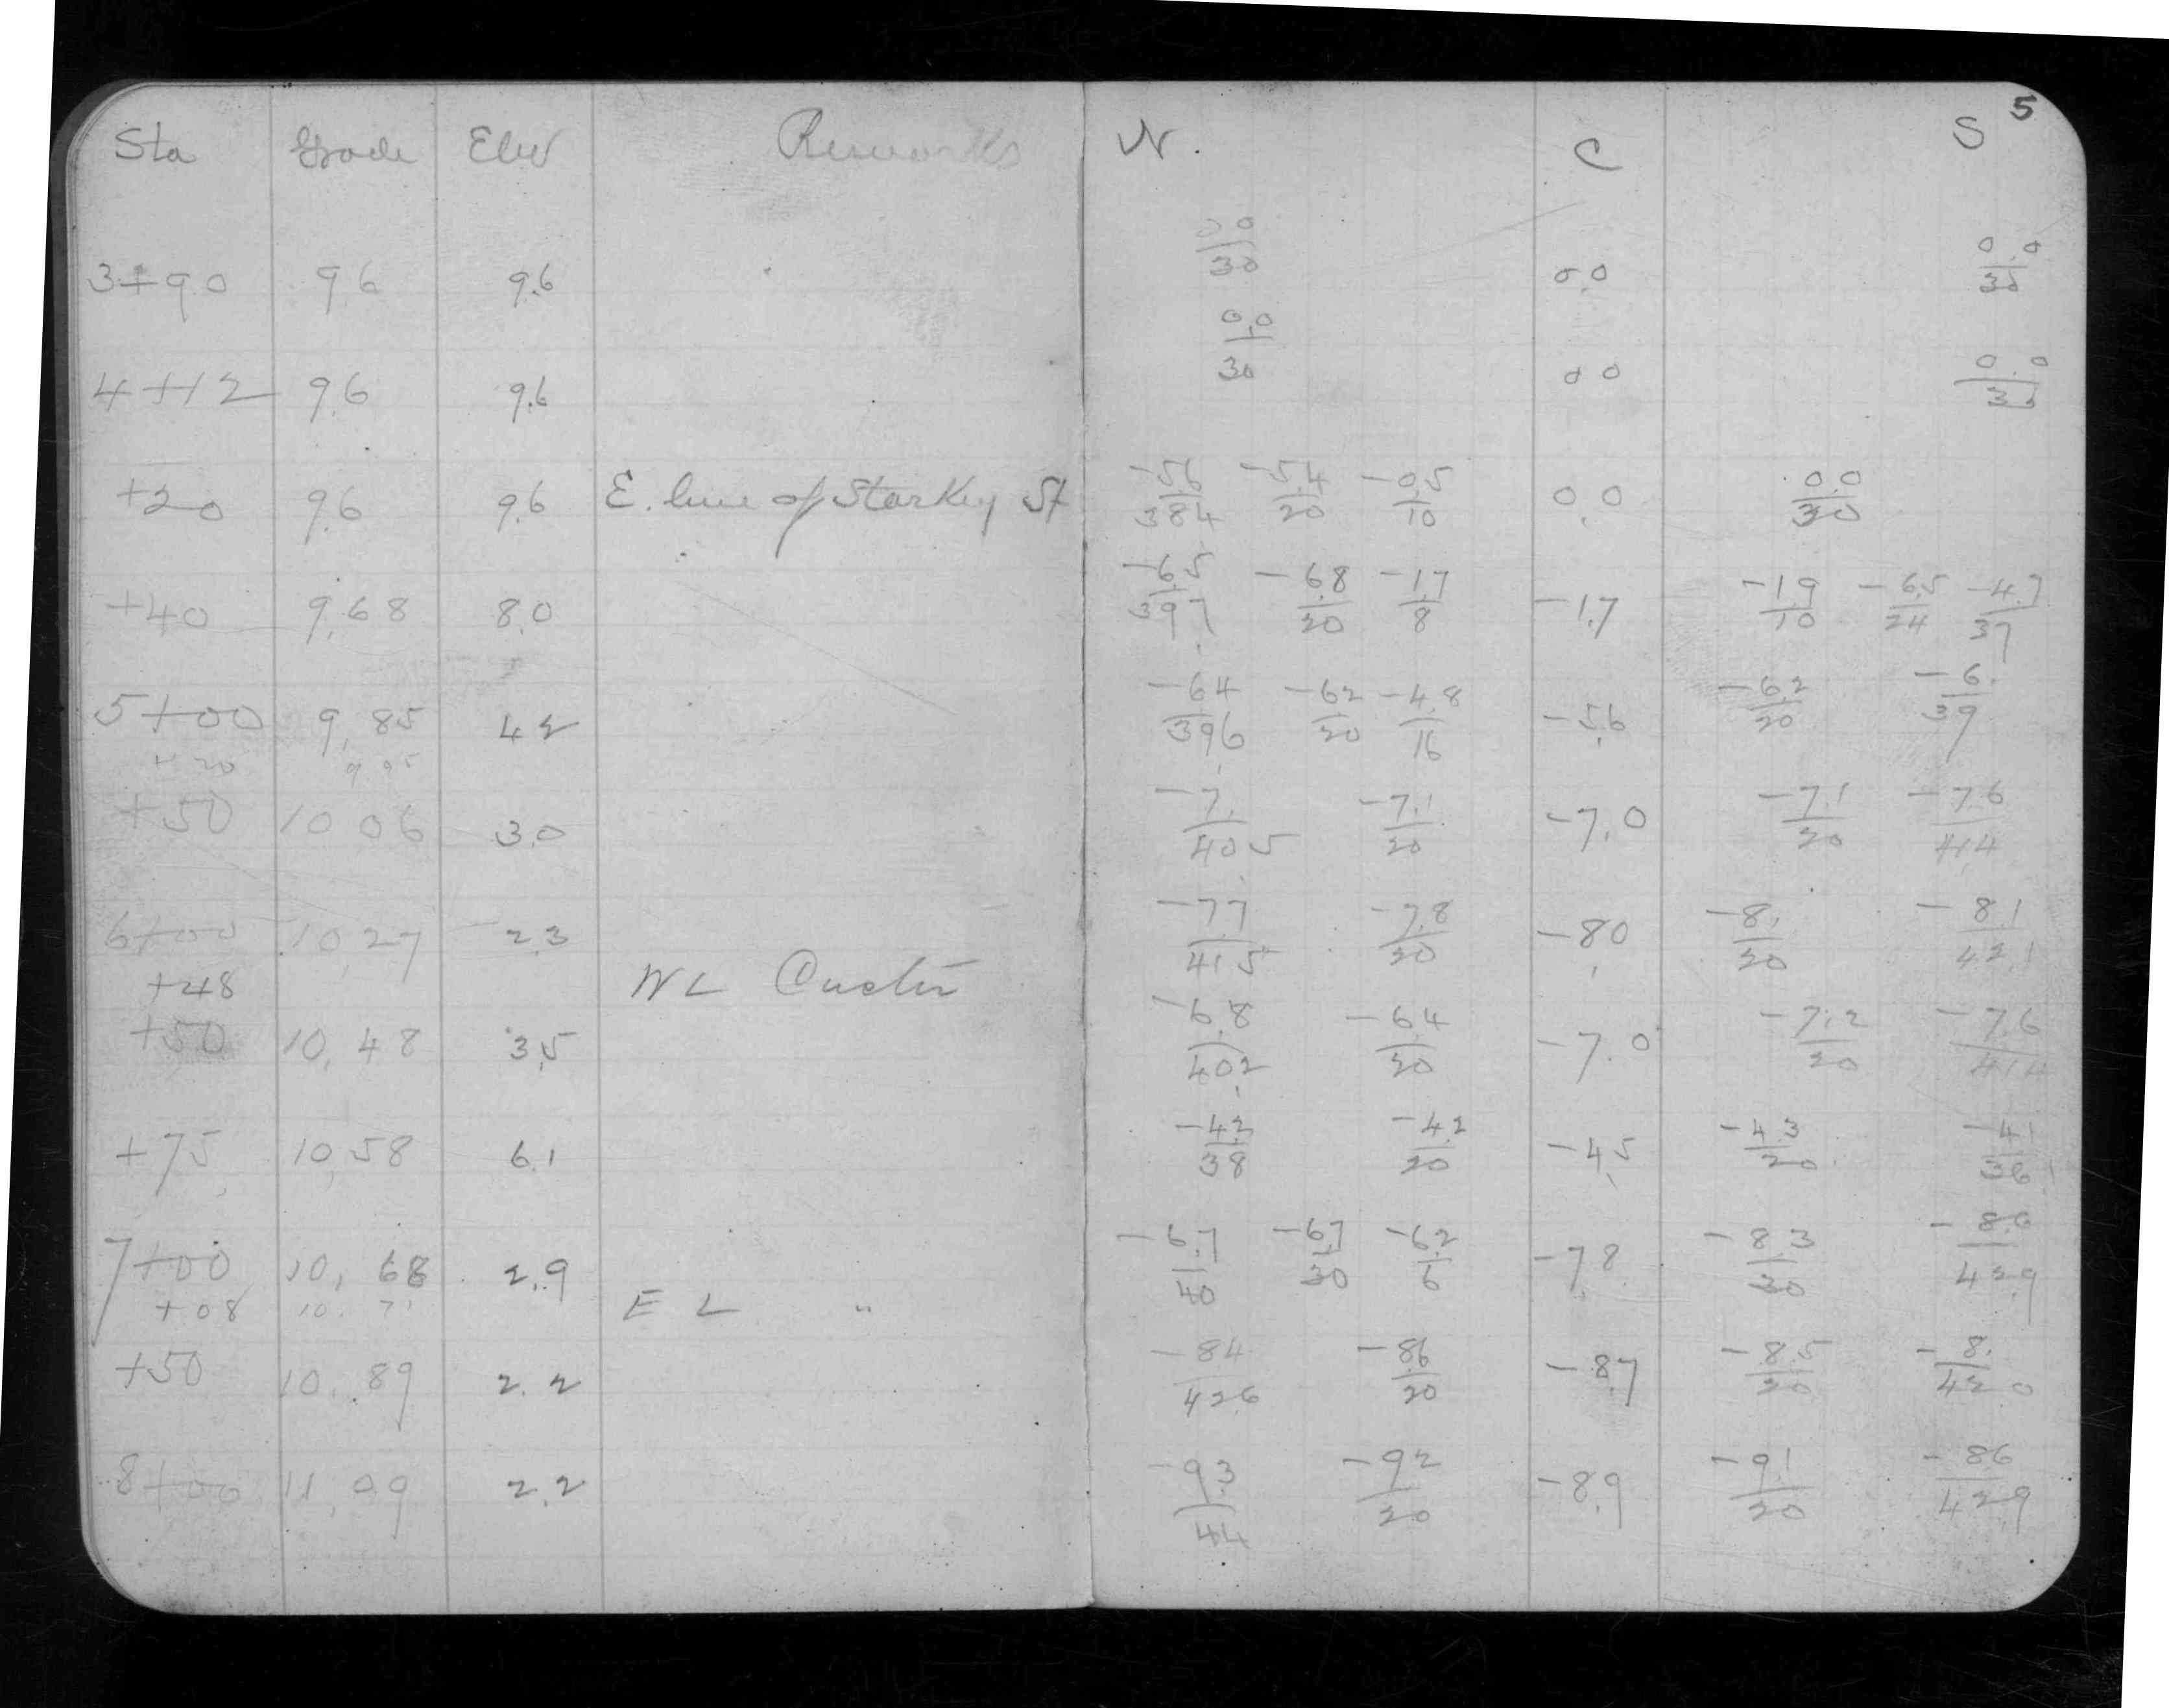 5
Sta Grade Elev Remarks N. C S
3+90 9.6 9.6 0.0/30 0.0 0.0/30
4+12 9.6 9.6 0.0/30 0 0 0.0/30
+20 9.6 9.6 E. line of Starkey St -5.6/38.4 -5.4/20 -0.5/10 0.0 0.0/30
+40 9.68 8.0 -6.5/39.7 -6.8/20 -1.7/8 -1.7 -1.9/10 -6.5/24 -4.7/37
5+00 9.85 4 2 -6.4/39.6 -6.2/20 -4.8/16 -5.6 -6.2/20 -6./39
+20 9 95
+50 10 06 3.0 -7./40.5 -7.1/20 -7.0 -7.1/20 -7.6/41.4
6+00 10.27 2.3 -7.7/41.5 -7.8/20 -8.0 -8./20 -8.1/42.1
+48 WL Custer
+50 10.48 3.5 -6.8/40.2 -6.4/20 -7.0 -7.2/20 -7.6/41.4
+75 10.58 6.1 -4.2/38 -4.2/20 -4.5 -4.3/20 -4.1/36
7+00 10.68 2.9 -6.7/40 -6.7/30 -6.2/6 -7.8 -8.3/30 -8.6/42.9
+08 10.71 E L "
+50 10.89 2.2 -8.4/42.6 -8.6/20 -8.7 -8.5/20 -8./42.0
8+00 11.09 2.2 -9.3/44 -9.2/20 -8.9 -9.1/20 -8.6/42.9